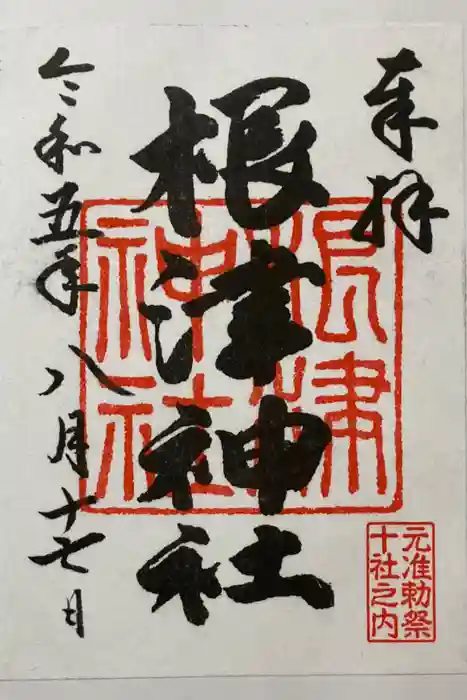 奉拝
根津神社
令和五年八月十七日
根津
神社
元准勅祭
十社之内